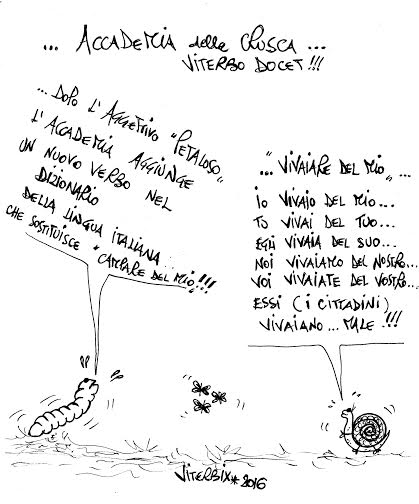 ... ACCADEMIA della CRUSCA ...
VITERBO DOCET!!!
... DOPO L'AGGETTIVO "PETALOSO"
L'ACCADEMIA AGGIUNGE
UN NUOVO VERBO NEL
DIZIONARIO
DELLA LINGUA ITALIANA
CHE SOSTITUISCE "CAMPARE DEL MIO"!!!
... "VIVAIARE DEL MIO" ...
IO VIVAIO DEL MIO...
TU VIVAI DEL TUO...
EGLI VIVAIA DEL SUO...
NOI VIVAIAMO DEL NOSTRO...
VOI VIVAIATE DEL VOSTRO...
ESSI (I CITTADINI)
VIVAIANO... MALE!!!
VITERBIX* 2016